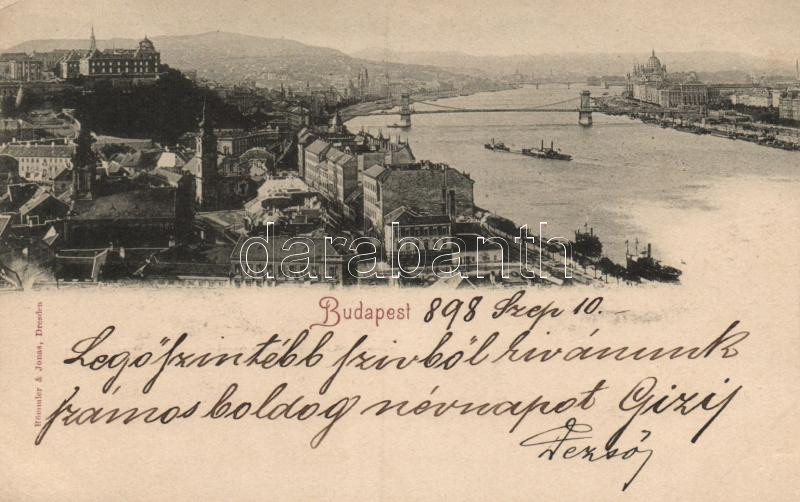 darabanth.com
Budapest 898 Szep 10.-
Legőszintébb szivből kivánunk
számos boldog névnapot Gizi,
Dezső
Römmler & Jonas, Dresden